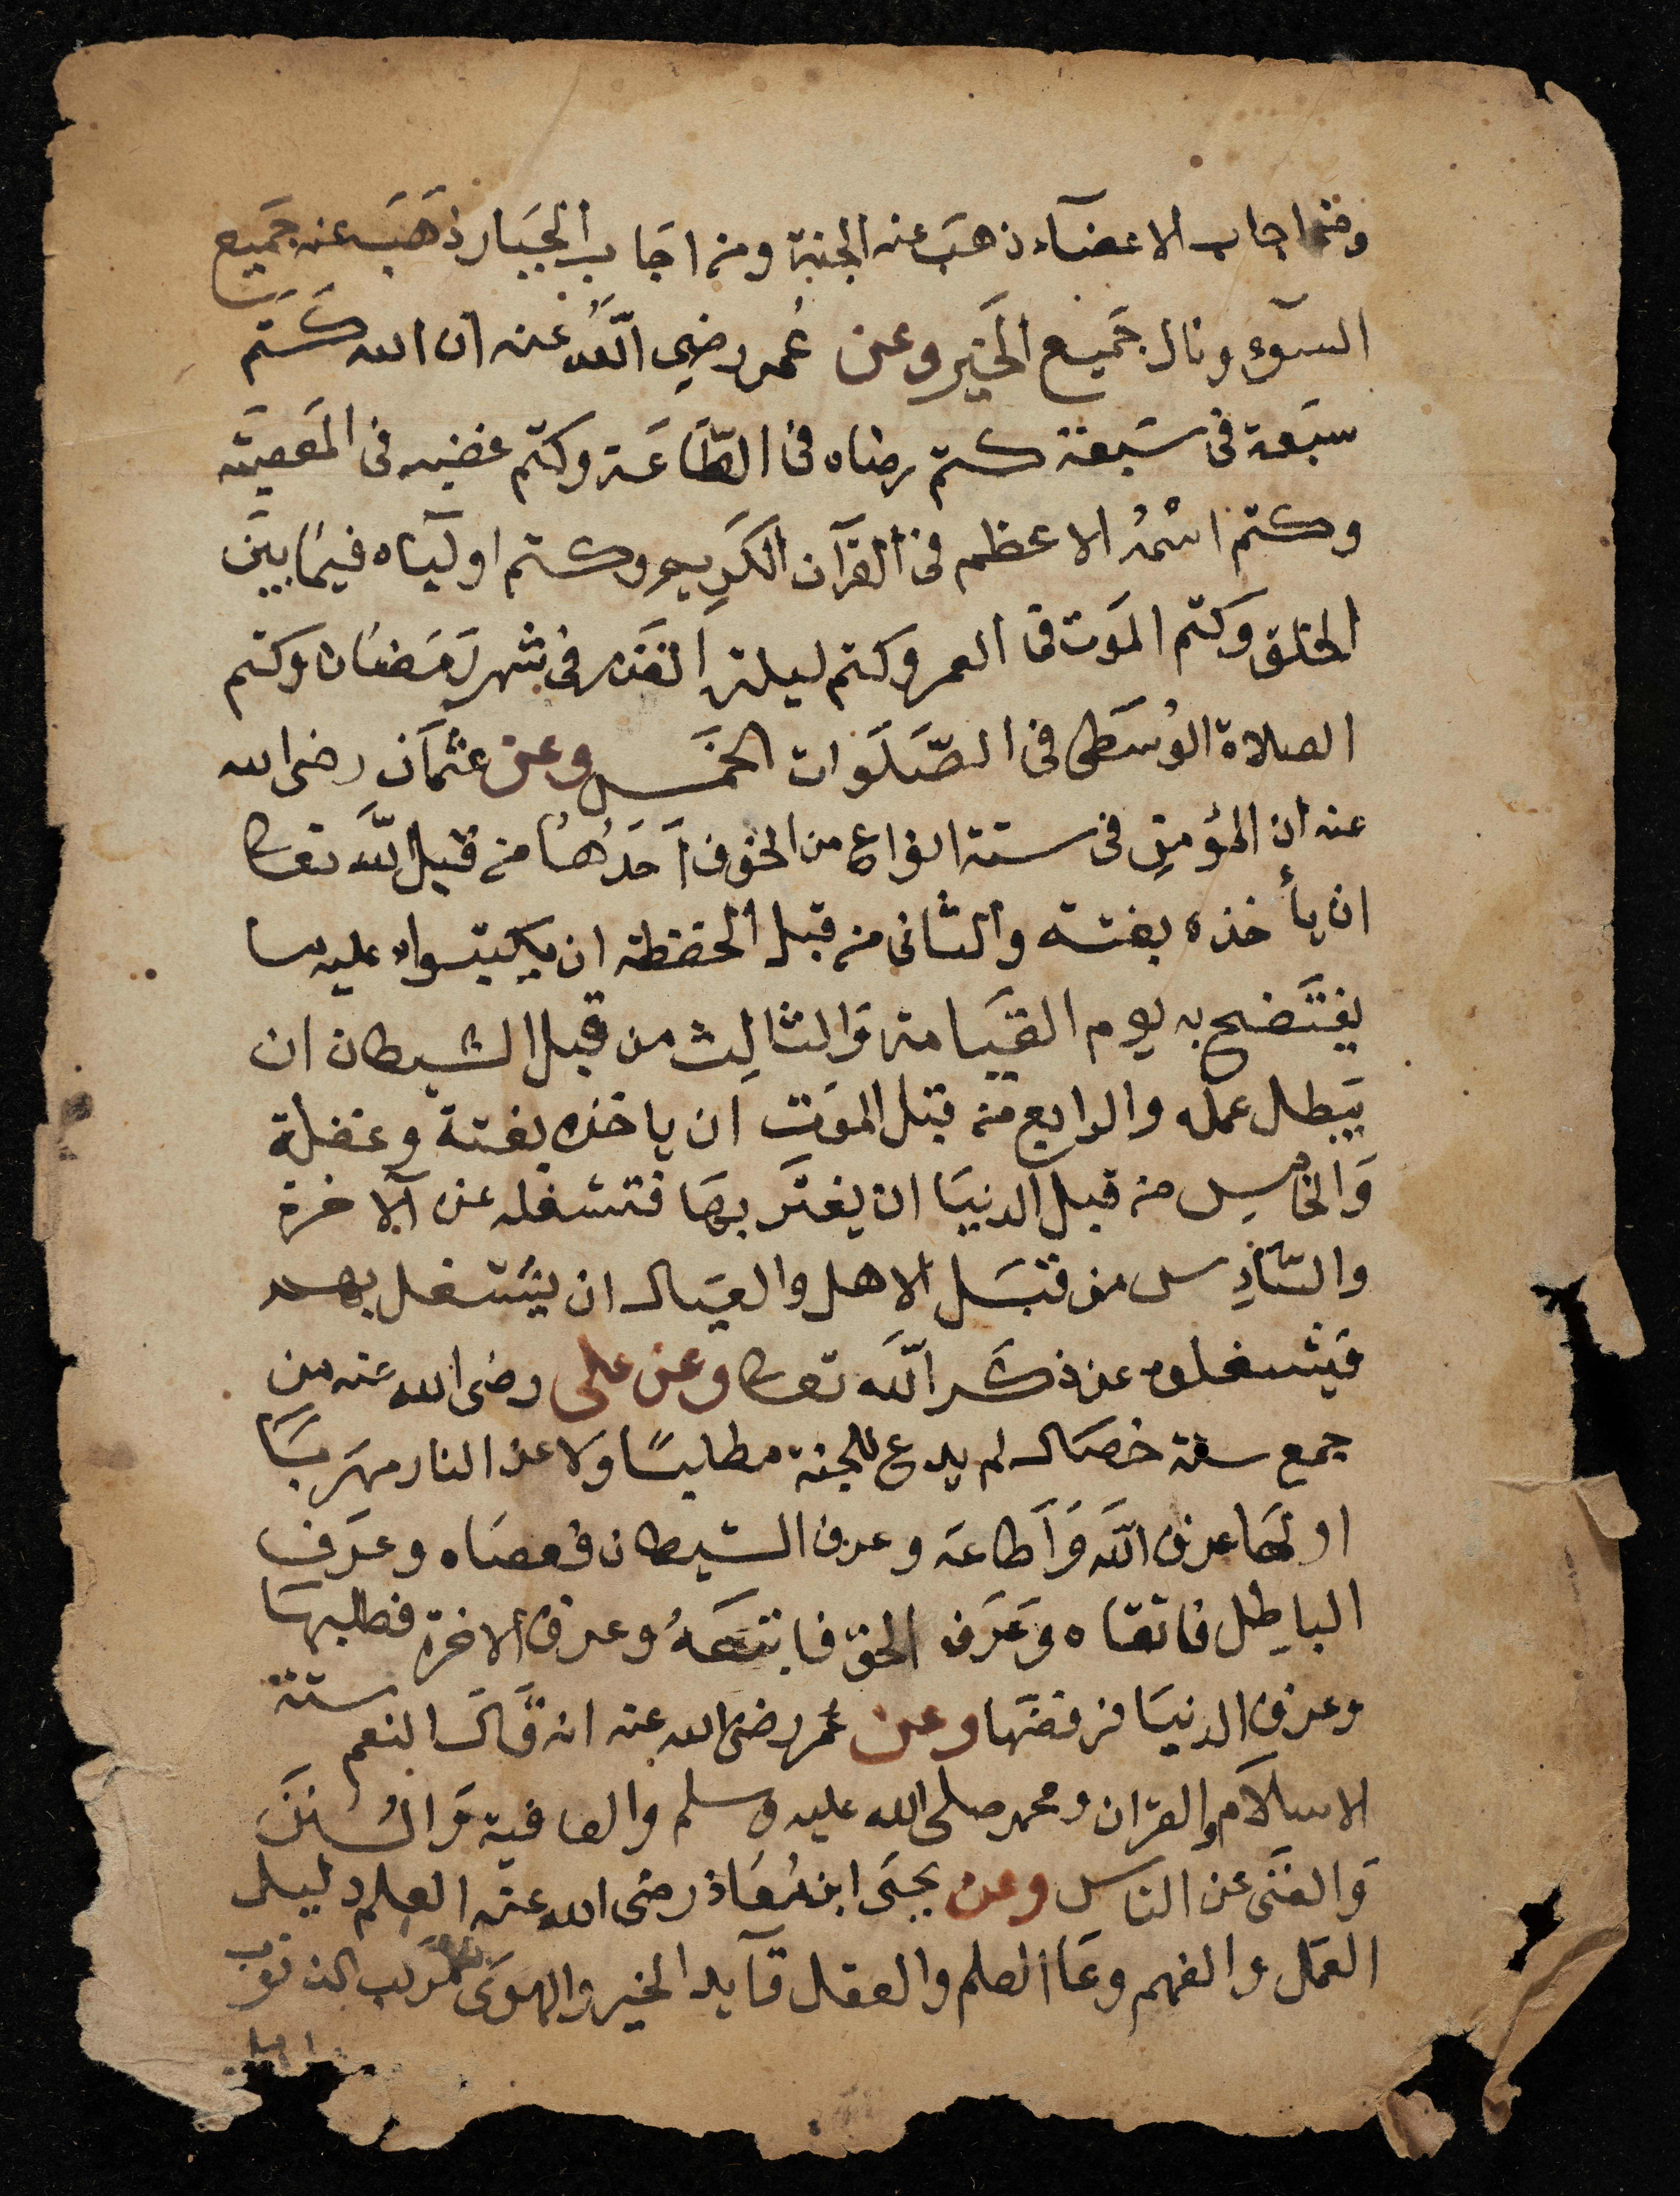 ومن اجاب الاعضآء ذهبَ عنه الجنة ومن اجَاب الجبَار ذَهَبَ عنه جَميع
السوٓء ونال جَميع الخَير وعن عُمر رضِي اللَّهُ عنه ان الله كَتَم
سبَعة فى سَبعة كتم رضاه فى الطَّاعَة وكتم غضبه فى المَعصيَته
وكتم اسْمُه الاعظم فى القرآن الكَرِيم وكتم اوليآه فيمَا بينَ
الخلق وَكتم المَوت فى العمر وكتم ليلة القَدر فى شهر رَمَضَان وَكتم
الصلاة الوُسَطى فى الصَّلَوات الخمَس وعن عثمَان رضى الله
عنه ان المؤمِن فى ستة انواع من الخوف اَحَدُهَا من قبل اللَّه تعالى
ان يأخذه بغتة والثانى من قبل الحفظة ان يكتبواه عليه ما
يفتَضح به يوم القيَامة وَالثالِث من قبل الشيطان ان
يَبطل عمله والرابع من قبل المَوت ان ياخذه بغتة وغفلة
وَالخامِس من قبل الدنيَا ان يغترَ بهَا فتشغله عن الآخرة
والسَّادِس من قبَل الاهل والعيَال ان يشتغل بهم
فيَشغلوه عن ذكَر اللَّه تعالى وعن على رضى الله عنه من
جمع ستة خصَال لم يدع للجنة مطلبًا ولا عن النار مهَربًا
اولهَا عرف اللَّه وَاَطاعَه وعرف الشيطان فعصَاه وعرَف
الباطِل فاتقاه وَعرَف الحق فاتبَعَهُ وعرف الاخرة فطلبهَا
وعرف الدنيَا فرفضَها وعن عُمر رضى الله عنه انه قَال النعم ستة
الاسلاَم والقران ومحمد صلى الله عليه وسلم والعافية وَالسُنَن
وَالغنَى عن الناس وعن يحيَى ابن مُعَاذ رضى الله عنه العِلم دليل
العمَل والفهم وعَا العلم والعقل قآيد الخير والهوَى مرَكب الذنوب